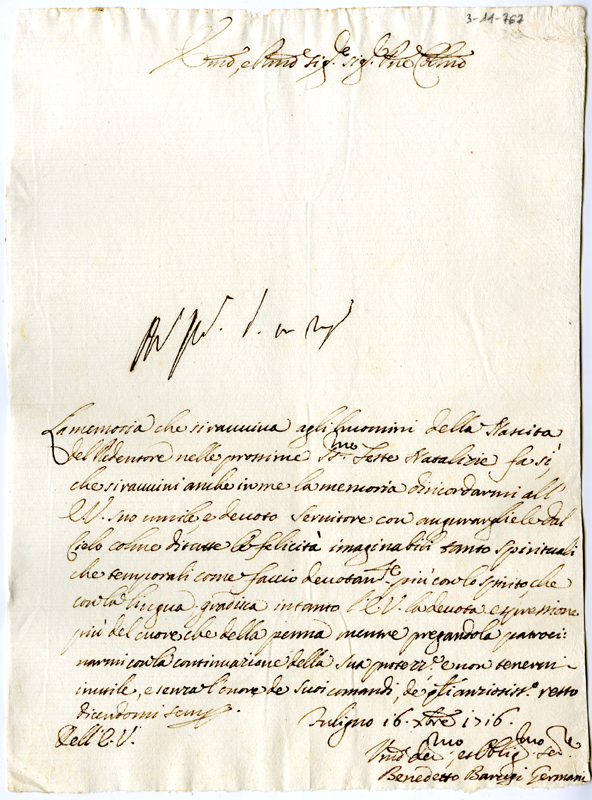 3-11-767
Em̃o, e Rmo sig.re sig.r Pñe Colmo
La memoria che si ravviva agli huomini della Nascita
del Redentore nelle prossime SSme Feste Natalizie fa sì,
che si ravvivi anche in me la memoria di ricordarmi all'
E.V. suo umile e devoto servitore con augurargliele dal
Cielo colme di tutte le felicità imaginabili tanto spirituali
che temporali come faccio devotamte più con lo spirito, che
con la lingua. gradisca intanto l'E.V. la devota espressione
più del cuore, che della penna mentre pregandola patroci:
narmi con la continuazione della sua
inutile, e senza l'onore de suoi comandi, de gli anziosiss.i resto
dicendomi semp.e
Fuligno 16. Xbre 1716.
Dell'E.V.
Umo devmo et Obligmo Serre
Benedetto Germani